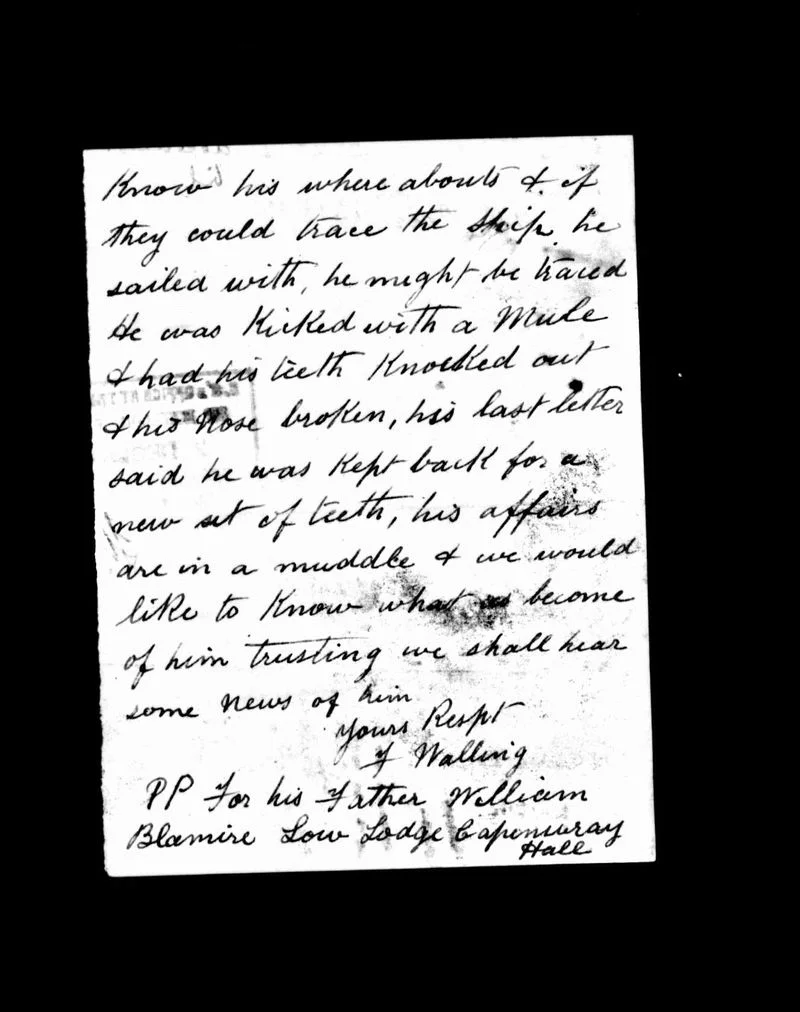 Know his where abouts & if
they could trace the ship he
sailed with, he might be traced
He was Kicked with a Mule
& had his teeth Knocked out
& his Nose broken, his last letter
said he was Kept back for a
new set of teeth, his affairs
are in a muddle & we would
like to Know what as become
of him trusting we shall hear
some news of him
yours Respt
F Walling
PP For his Father William
Blamire Low Lodge Capenwray
Hall